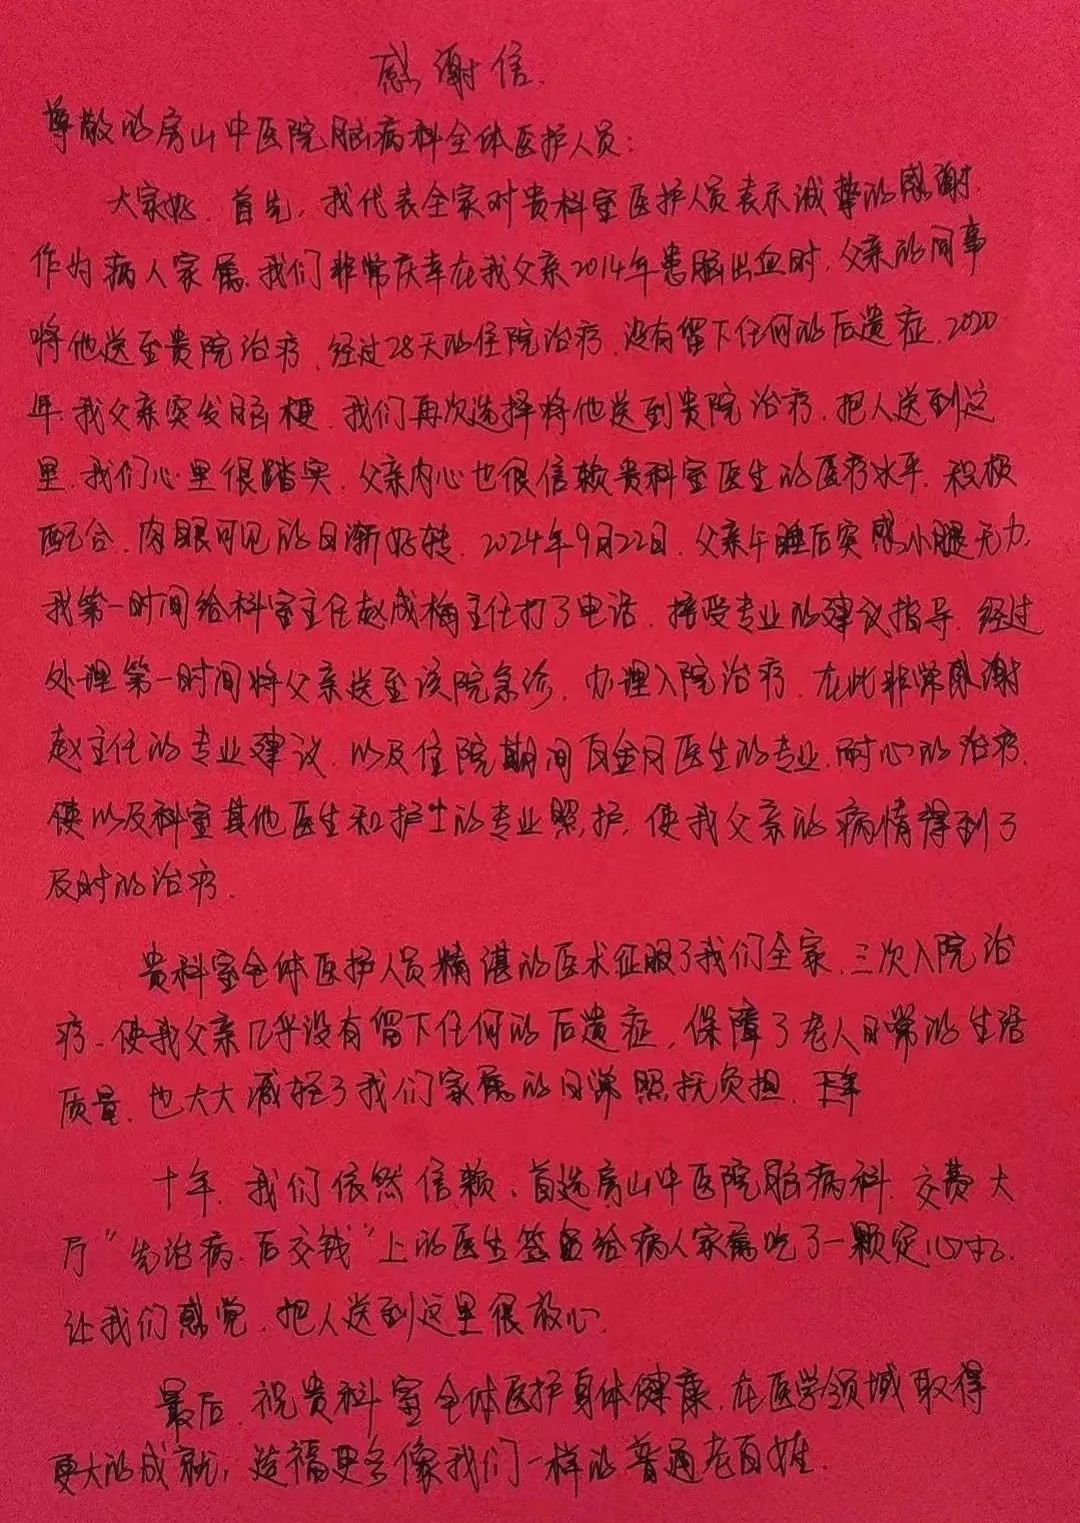 感谢信.
尊敬的房山中医院脑病科全体医护人员:
大家好.首先,我代表全家对贵科室医护人员表示诚挚的感谢.
作为病人家属.我们非常庆幸在我父亲2014年患脑出血时,父亲的同事
将他送至贵院治疗.经过28天的住院治疗.没有留下任何的后遗症.2020
年.我父亲突发脑梗.我们再次选择将他送到贵院治疗.把人送到这
里.我们心里很踏实.父亲内心也很信赖贵科室医生的医疗水平.积极
配合.肉眼可见的日渐好转.2024年9月22日.父亲午睡后突感小腿无力.
我第一时间给科室主任赵成梅主任打了电话.接受专业的建议指导.经过
处理第一时间将父亲送至该院急诊.办理入院治疗.在此非常感谢
赵主任的专业建议.以及住院期间医生的专业.耐心的治疗.
使以及科室其他医生和护士的专业照护.使我父亲的病情得到了
及时的治疗.
贵科室全体医护人员精湛的医术征服了我们全家.三次入院治
疗.使我父亲几乎没有留下任何的后遗症,保障了老人日常的生活
质量.也大大减轻了我们家属的日常照抚负担.
十年.我们依然信赖、首选房山中医院脑病科.交费大
厅"先治病.后交钱"上的医生签名给病人家属吃了一颗定心丸.
让我们感觉.把人送到这里很放心.
最后.祝贵科室全体医护身体健康.在医学领域取得
更大的成就,造福更多像我们一样的普通老百姓.